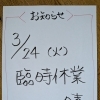 お知らせ
3/24(火)
臨時休業